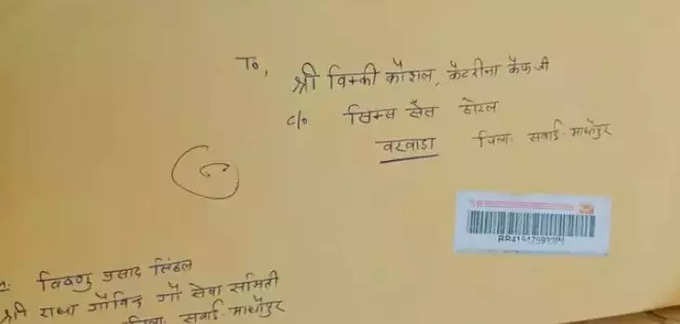 To,
श्री विक्की कौशल, कैटरीना कैफ जी
c/o सिक्स सैंस होटल
बरवाडा जिला. सवाई-माधोपुर
विष्णु प्रसाद सिंहल
श्री राधा गोविन्द गौ सेवा समिति
जिला. सवाई-माधोपुर